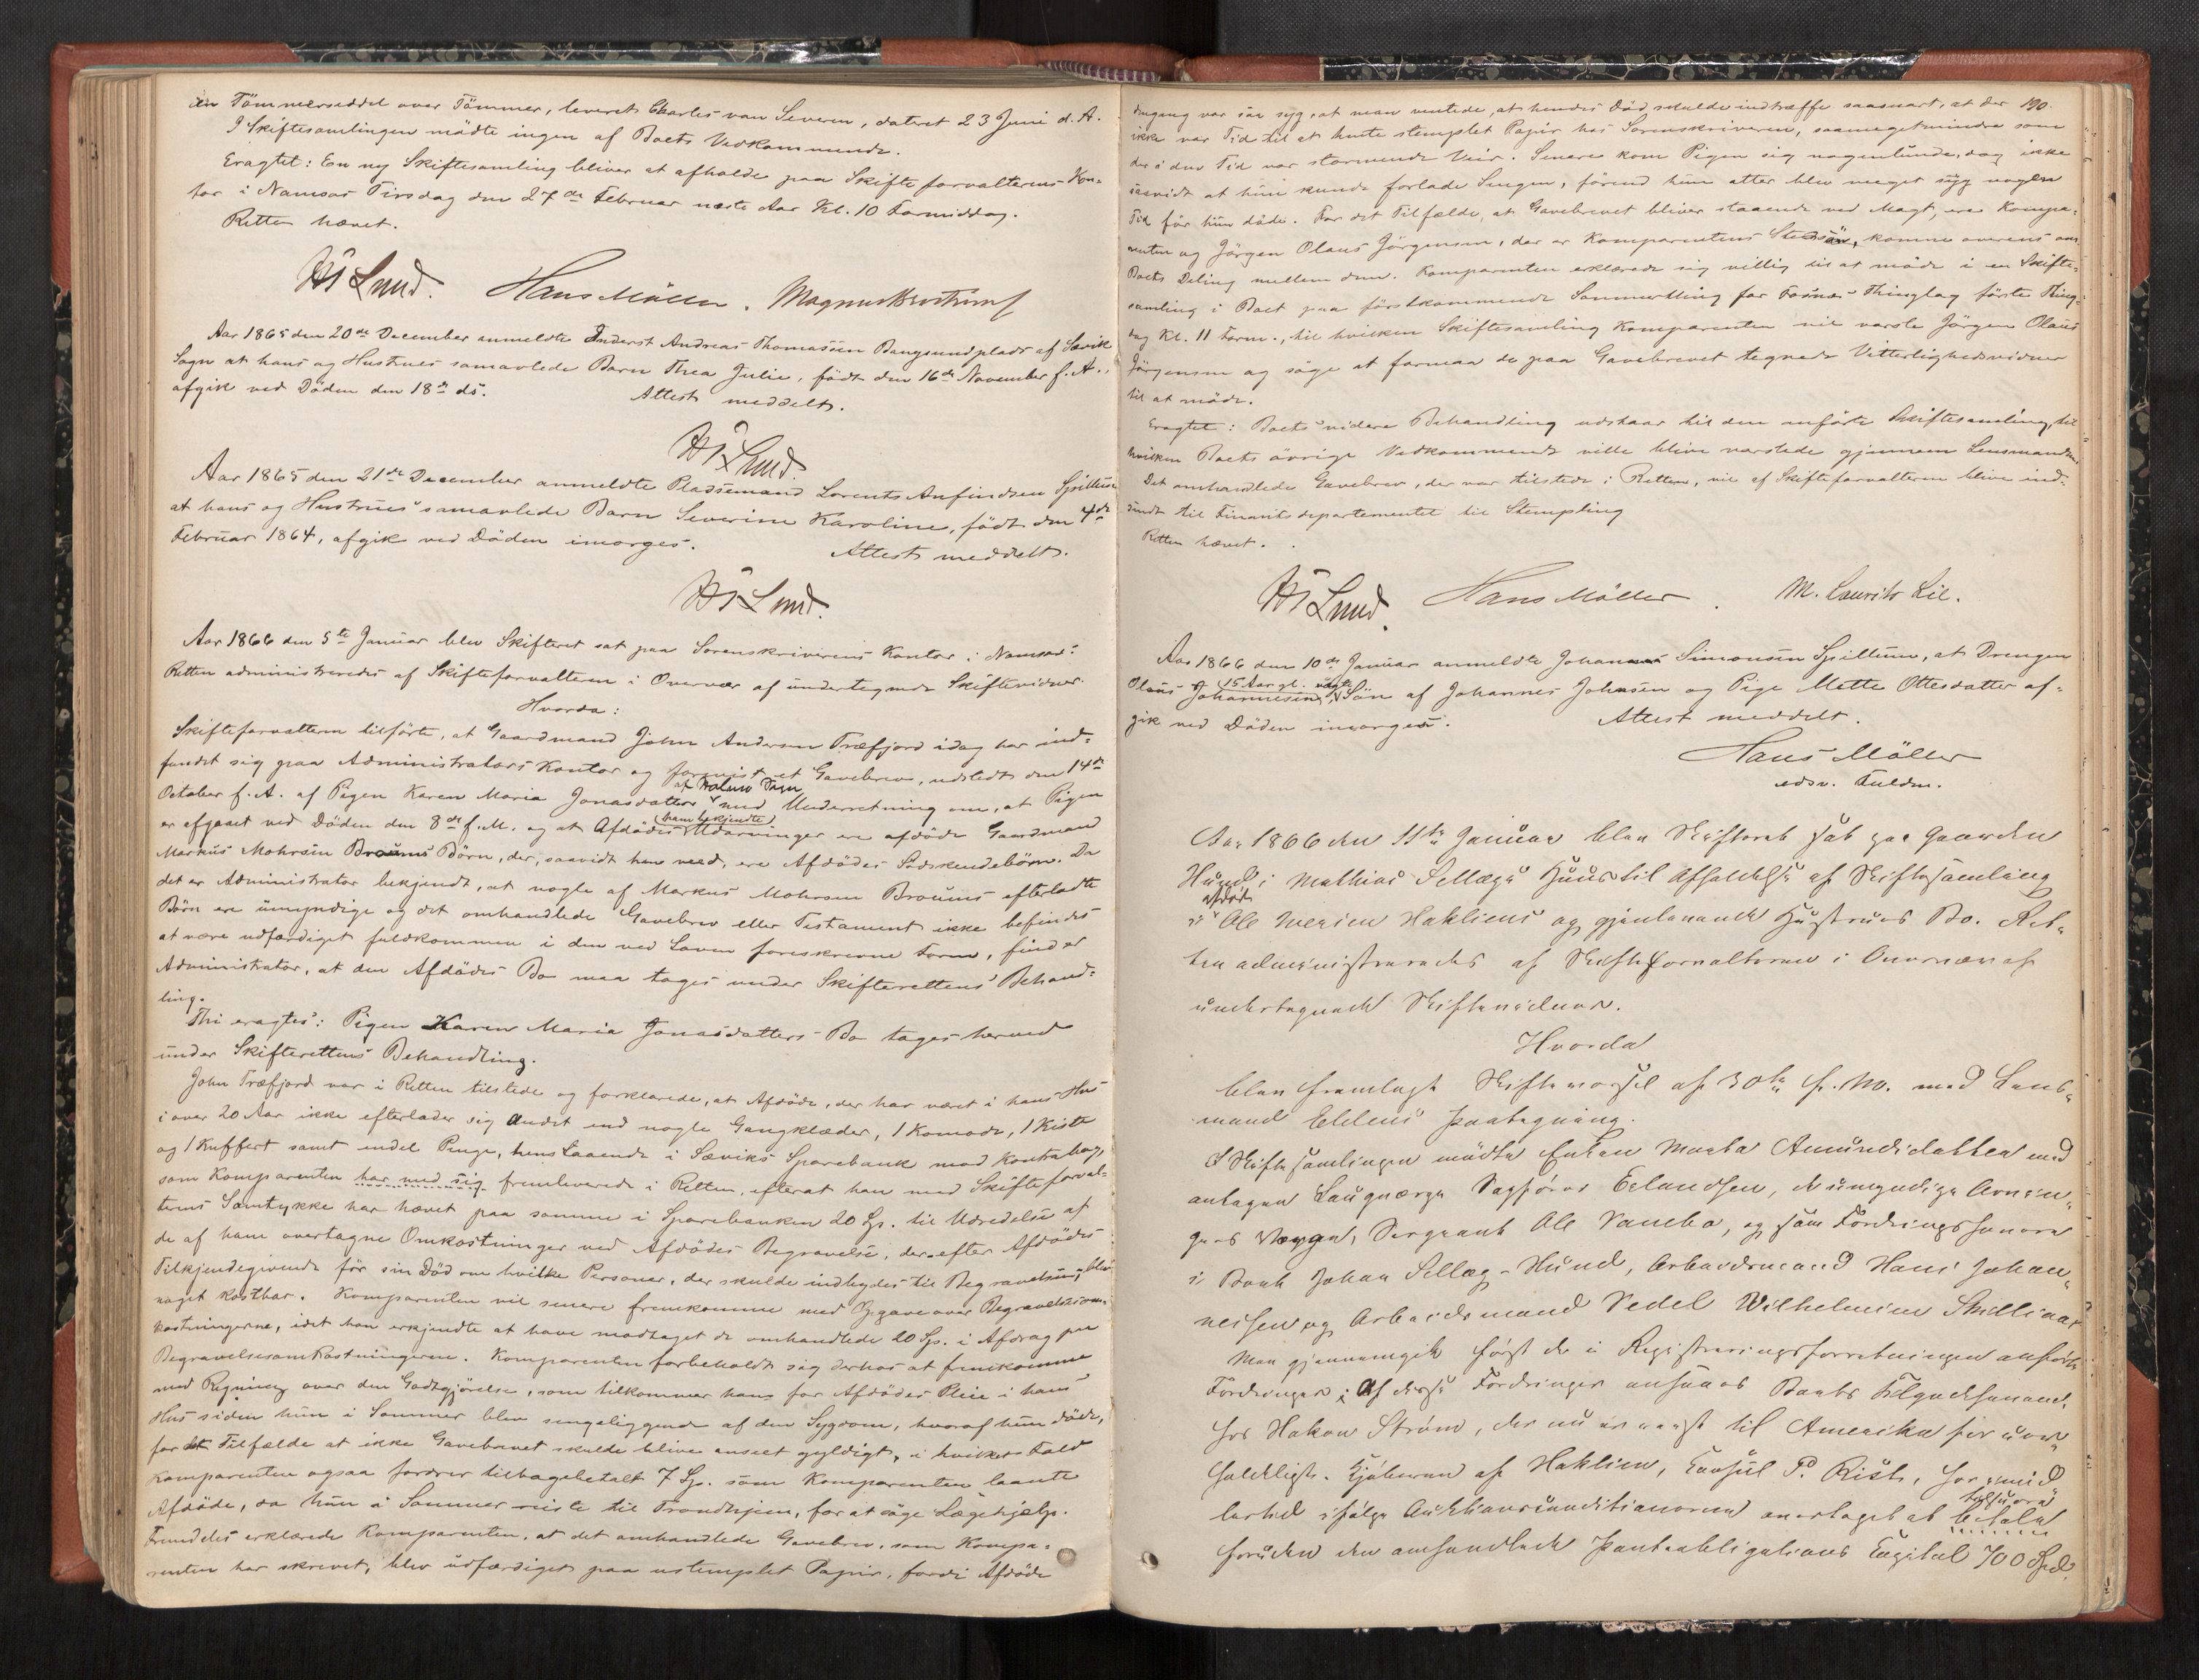 en Tømmerseddel over Tømmer, leveret Charles van Severen, dateret 23 Juni d. A.
I Skiftesamlingen mødte ingen af Boets Vedkommende.
Eragtet: En ny Skiftesamling bliver at afholde paa Skifteforvalterens Kon=
tor i Namsos Tirsdag den 27de Februar næste Aar Kl. 10 Formiddag.
Retten hævet.
Lund. Hans Möller. Magnus
Aar 1865 den 20de December anmeldte Inderst Andreas Thomassen Bangsundplads af Sævik
Sogn at hans og Hustrues samavlede Barn Thea Julie, født den 16de November f. A.,
afgik ved Døden den 18de ds. Attest meddelt.
Lund
Aar 1865 den 21de December anmeldte Pladsemand Lorents Anfindsen Spillum
at hans og Hustrues samavlede Barn Severine Karoline, født den 4de
Februar 1864, afgik ved Døden imorges. Attest meddelt.
Lund.
Aar 1866 den 5te Januar blev Skifteret sat paa Sorenskriverens Kontor i Namsos.
Retten administreredes af Skifteforvalteren i Overvær af undertegnede Skiftevidner.
Hvorda:
Skifteforvalteren tilførte, at Gaardmand John Andersen Træfjord idag har ind=
fundet sig paa Administrators Kontor og forevist et Gavebrev, udstedt den 14de
October f. A. af Pigen Karen Maria Jonasdatter med Underretning om, at Pigen
er afgaaet ved Døden den 8de f. M. og at Afdødes (ham bekjendte) Udarvinger ere afdøde Gaardmand
Markus Mohrsen Brouns Børn, der, saavidt han veed, ere Afdødes Sødskendebørn. Da
det er Administrator bekjendt, at nogle af Markus Mohrsen Brouns efterladte
Børn ere umyndige og det omhandlede Gavebrev eller Testament ikke befindes
at være udfærdiget fuldkommen i den ved Loven foreskrevne Form, finder
Administrator, at den Afdødes Bo maa tages under Skifterettens Behand=
ling.
Thi eragtes: Pigen Karen Maria Jonasdatters Bo tages herved
under Skifterettens Behandling.
John Træfjord var i Retten tilstede og forklarede, at Afdøde, der har været i hans Hus
i over 20 Aar ikke efterlader sig andet end nogle Gangklæder, 1 Komode, 1 Kiste
og 1 Kuffert samt endel Penge, henstaaende i Sæviks Sparebank mod Kontrabog,
som Komparenten har med sig fremleverede i Retten, efterat han med Skifteforval-
terens Samtykke har hævet paa samme i Sparebanken 20 Sp. til Udredelse af
de af ham overtagne Omkostninger ved Afdødes Begravelse, der efter Afdødes
Tilkjendegivende før sin Død om hvilke Personer, der skulde indbydes til Begravelsen, blev
noget kostbar. Komparenten vil senere fremkomme med Opgave over Begravelsesom-
kostningerne, idet han erkjendte at have modtaget de omhandlede 20 Sp. i Afdrag paa
Begravelsesomkostningerne. Komparenten forbeholdt sig derhos at fremkomme
med Regning over den Godtgjørelse, som tilkommer ham for Afdødes Pleie i hans
Hus siden hun i Sommer blev sengeliggende af den Sygdom, hvoraf hun døde,
for det Tilfælde at ikke Gavebrevet skulde blive anseet gyldigt, i hvilket Fald
Komparenten ogsaa fordrer tilbagebetalt 7 Sp. som Komparenten laante
Afdøde, da hun i Sommer reiste til Trondhjem, for at søge Lægehjælp.
Fremdeles erklærede Komparenten, at det omhandlede Gavebrev, som Kompa=
renten har skrevet, blev udfærdiget paa ustemplet Papir, fordi Afdøde
190.
dengang var saa syg, at man ventede, at hendes Død skulde indtræffe saasnart, at der
ikke var Tid til at hente stemplet Papir hos Sorenskriveren, saameget mindre som
der i den Tid var stormende Veir. Senere kom Pigen sig nogenlunde, dog ikke
saavidt at hun kunde forlade Sengen, førend hun atter blev meget syg nogen
Tid før hun døde. For det Tilfælde, at Gavebrevet bliver staaende ved Magt, ere Kompa=
renten og Jørgen Olaus Jørgensen, der er Komparentens Stedsøn, komne overens om
Boets Deling mellem dem. Komparenten erklærede sig villig til at møde i en Skifte=
samling i Boet paa førstkommende Sommerthing for Fosnæs Thinglag første Thing=
dag Kl. 11 Form., til hvilken Skiftesamling Komparenten vil varsle Jørgen Olaus
Jørgensen og søge at formaa de paa Gavebrevet tegnede Vitterlighedsvidner
til at møde.
Eragtet: Boets videre Behandling udstaar til den anførte Skiftesamling, til
hvilken Boets øvrige Vedkommende ville blive varslede gjennem Lensmanden.
Det omhandlede Gavebrev, der var tilstede i Retten, vil af Skifteforvalteren blive ind=
sendt til Finantsdepartementet til Stempling
Retten hævet.
Lund. Hans Möller. M. Laurits Lie.
Aar 1866 den 10de Januar anmeldte Johannes Simonsen Spillum, at Drengen
Olaus Johannesen, 15 Aar gl. uægte Søn af Johannes Johnsen og Pige Mette Ottesdatter af=
gik ved Døden imorges. Attest meddelt.
Hans Möller
edsv. Fuldm.
Aar 1866 den 11te Januar blev Skifteret sat paa Gaarden
Hund i Mathias Sellægs Huus til Afholdelse af Skiftesamling
i afdøde Ole Iversen Hakliens og gjenlevende Hustrues Bo. Ret=
ten administreredes af Skifteforvalteren i Overvær af
undertegnede Skiftevidner.
Hvorda
blev fremlagt Skiftevarsel af 30te f. M. med Lens=
mand Eldens Paategning.
I Skiftesamlingen mødte Enken Marta Amundsdatter med
antagen Laugværge Sagfører Erlandsen, de umyndige Arvin=
gers Værge, Sergeant Ole Vanebo, og som Fordringshavere
i Boet Johan Sellæg-Hund, Arbeidsmand Hans Johan=
nessen og Arbeidsmand Sedel Wilhelmsen Skillinaas
Man gjennemgik først de i Registreringsforretningen anførte
Fordringer; Af disse Fordringer ansaaes Boets Tilgodehavende
hos Hakon Strøm, der nu er reist til Amerika for uer=
holdelig. Kjøberen af Haklien, Consul P. Risti, har imid=
lertid ifølge Auktionsconditionerne overtaget at tilsvare betale
foruden den omhandlede Panteobligations Capital 700 Spd.